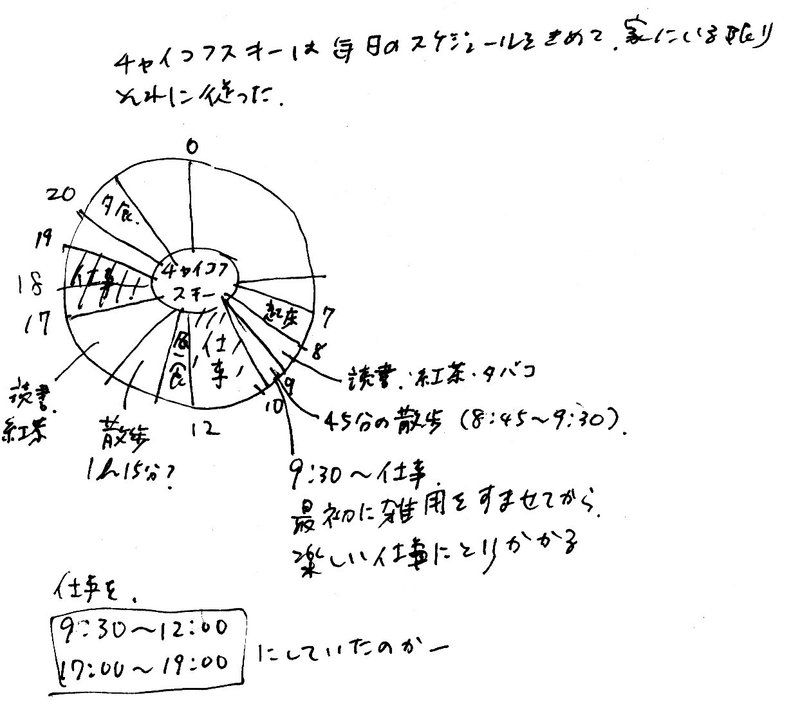 チャイコフスキーは毎日のスケジュールをきめて、家にいる限り
それに従った.
0
20
夕食.
19
仕事!
18
17
チャイコフ
スキー
起床
7
8
9
10
12
仕
事
昼
食
読書・紅茶・タバコ
45分の散歩 (8:45〜9:30).
読書.
紅茶
散歩
1h15分?
9:30〜仕事.
最初に雑用をすませてから、
楽しい仕事にとりかかる
仕事を、
9:30〜12:00
17:00〜19:00
にしていたのかー